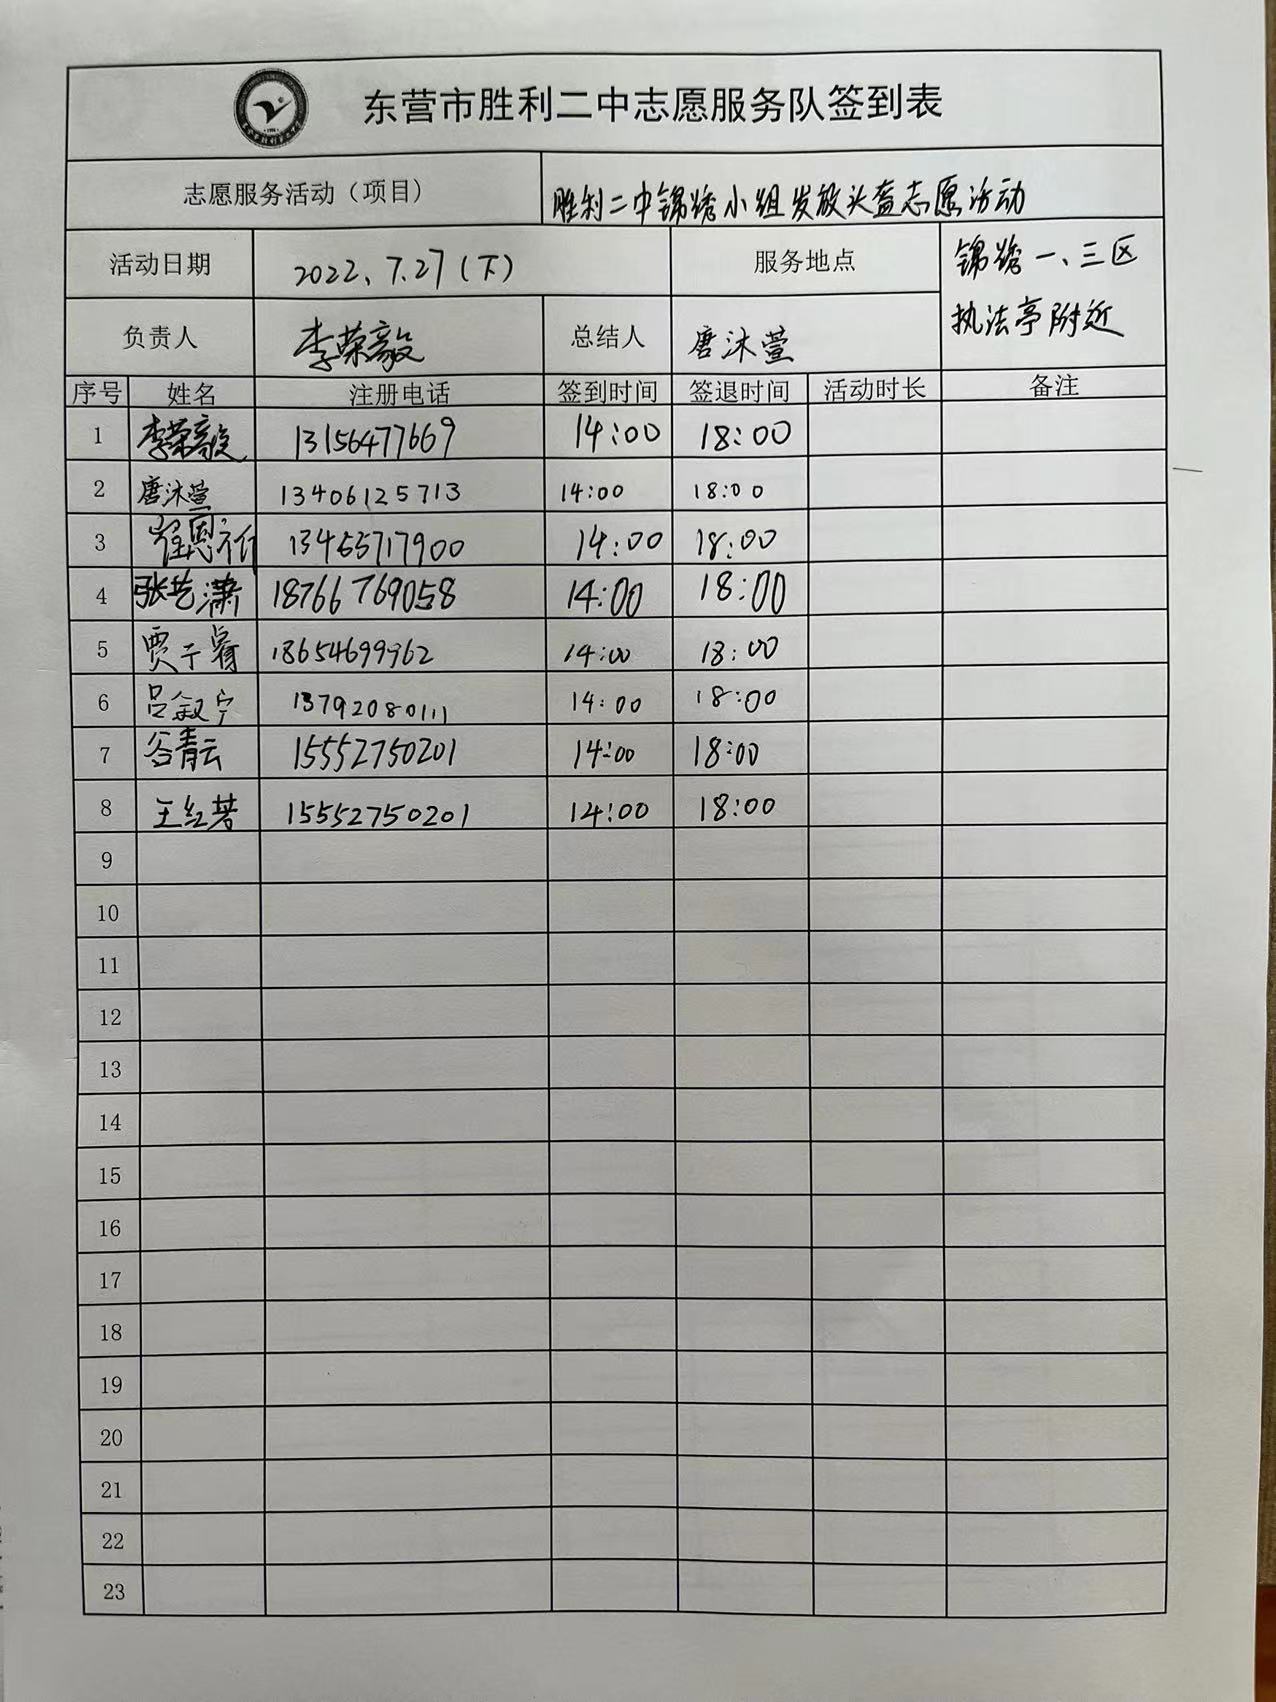 东营市胜利二中志愿服务队签到表
志愿服务活动（项目） 胜利二中锦绣小组发放头盔志愿活动
活动日期 2022、7.27（下） 服务地点 锦绣一、三区
执法亭附近
负责人 李荣毅 总结人 唐沐萱
序号 姓名 注册电话 签到时间 签退时间 活动时长 备注
1 李荣毅 13156477669 14:00 18:00
2 唐沐萱 13406125713 14:00 18:00
3 崔恩祈 13455717900 14:00 18:00
4 张艺潇 18766769058 14:00 18:00
5 贾子睿 18654699962 14:00 18:00
6 吕叙宁 13792080111 14:00 18:00
7 谷青云 15552750201 14:00 18:00
8 王红 15552750201 14:00 18:00
9
10
11
12
13
14
15
16
17
18
19
20
21
22
23